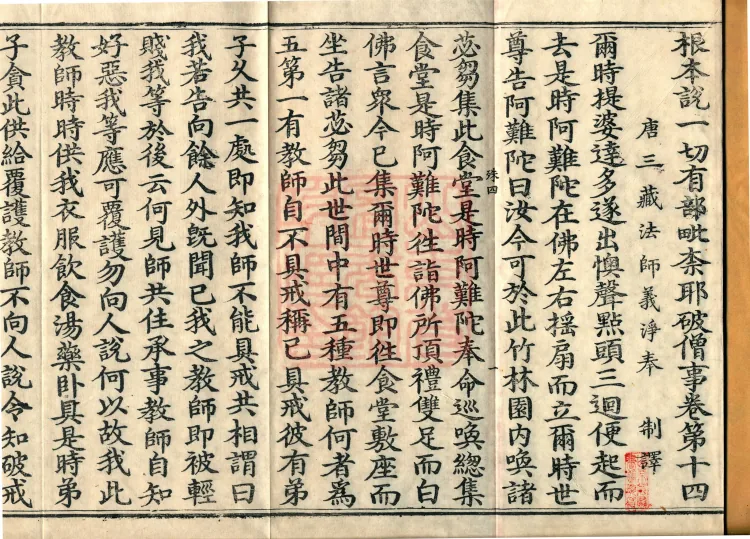 根本說一切有部毗柰耶破僧事卷第十四
唐三藏法師義淨奉 制譯
爾時提婆達多遂出懊聲點頭三迴便起而
去是時阿難陀在佛左右搖扇而立爾時世
尊告阿難陀曰汝今可於此竹林園内喚諸
殊四
一
苾芻集此食堂是時阿難陀奉命巡喚緫集
食堂是時阿難陀往詣佛所頂禮雙足而白
佛言衆今已集爾時世尊即往食堂敷座而
坐告諸苾芻此世間中有五種教師何者為
五第一有教師自不具戒稱已具戒彼有弟
子久共一處即知我師不能具戒共相謂曰
我若告向餘人外旣聞已我之教師即被輕
賤我等於後云何見師共住承事教師自知
好惡我等應可覆護勿向人說何以故我此
教師時時供我衣服飲食湯藥卧具是時弟
子貪此供給覆護教師不向人說令知破戒